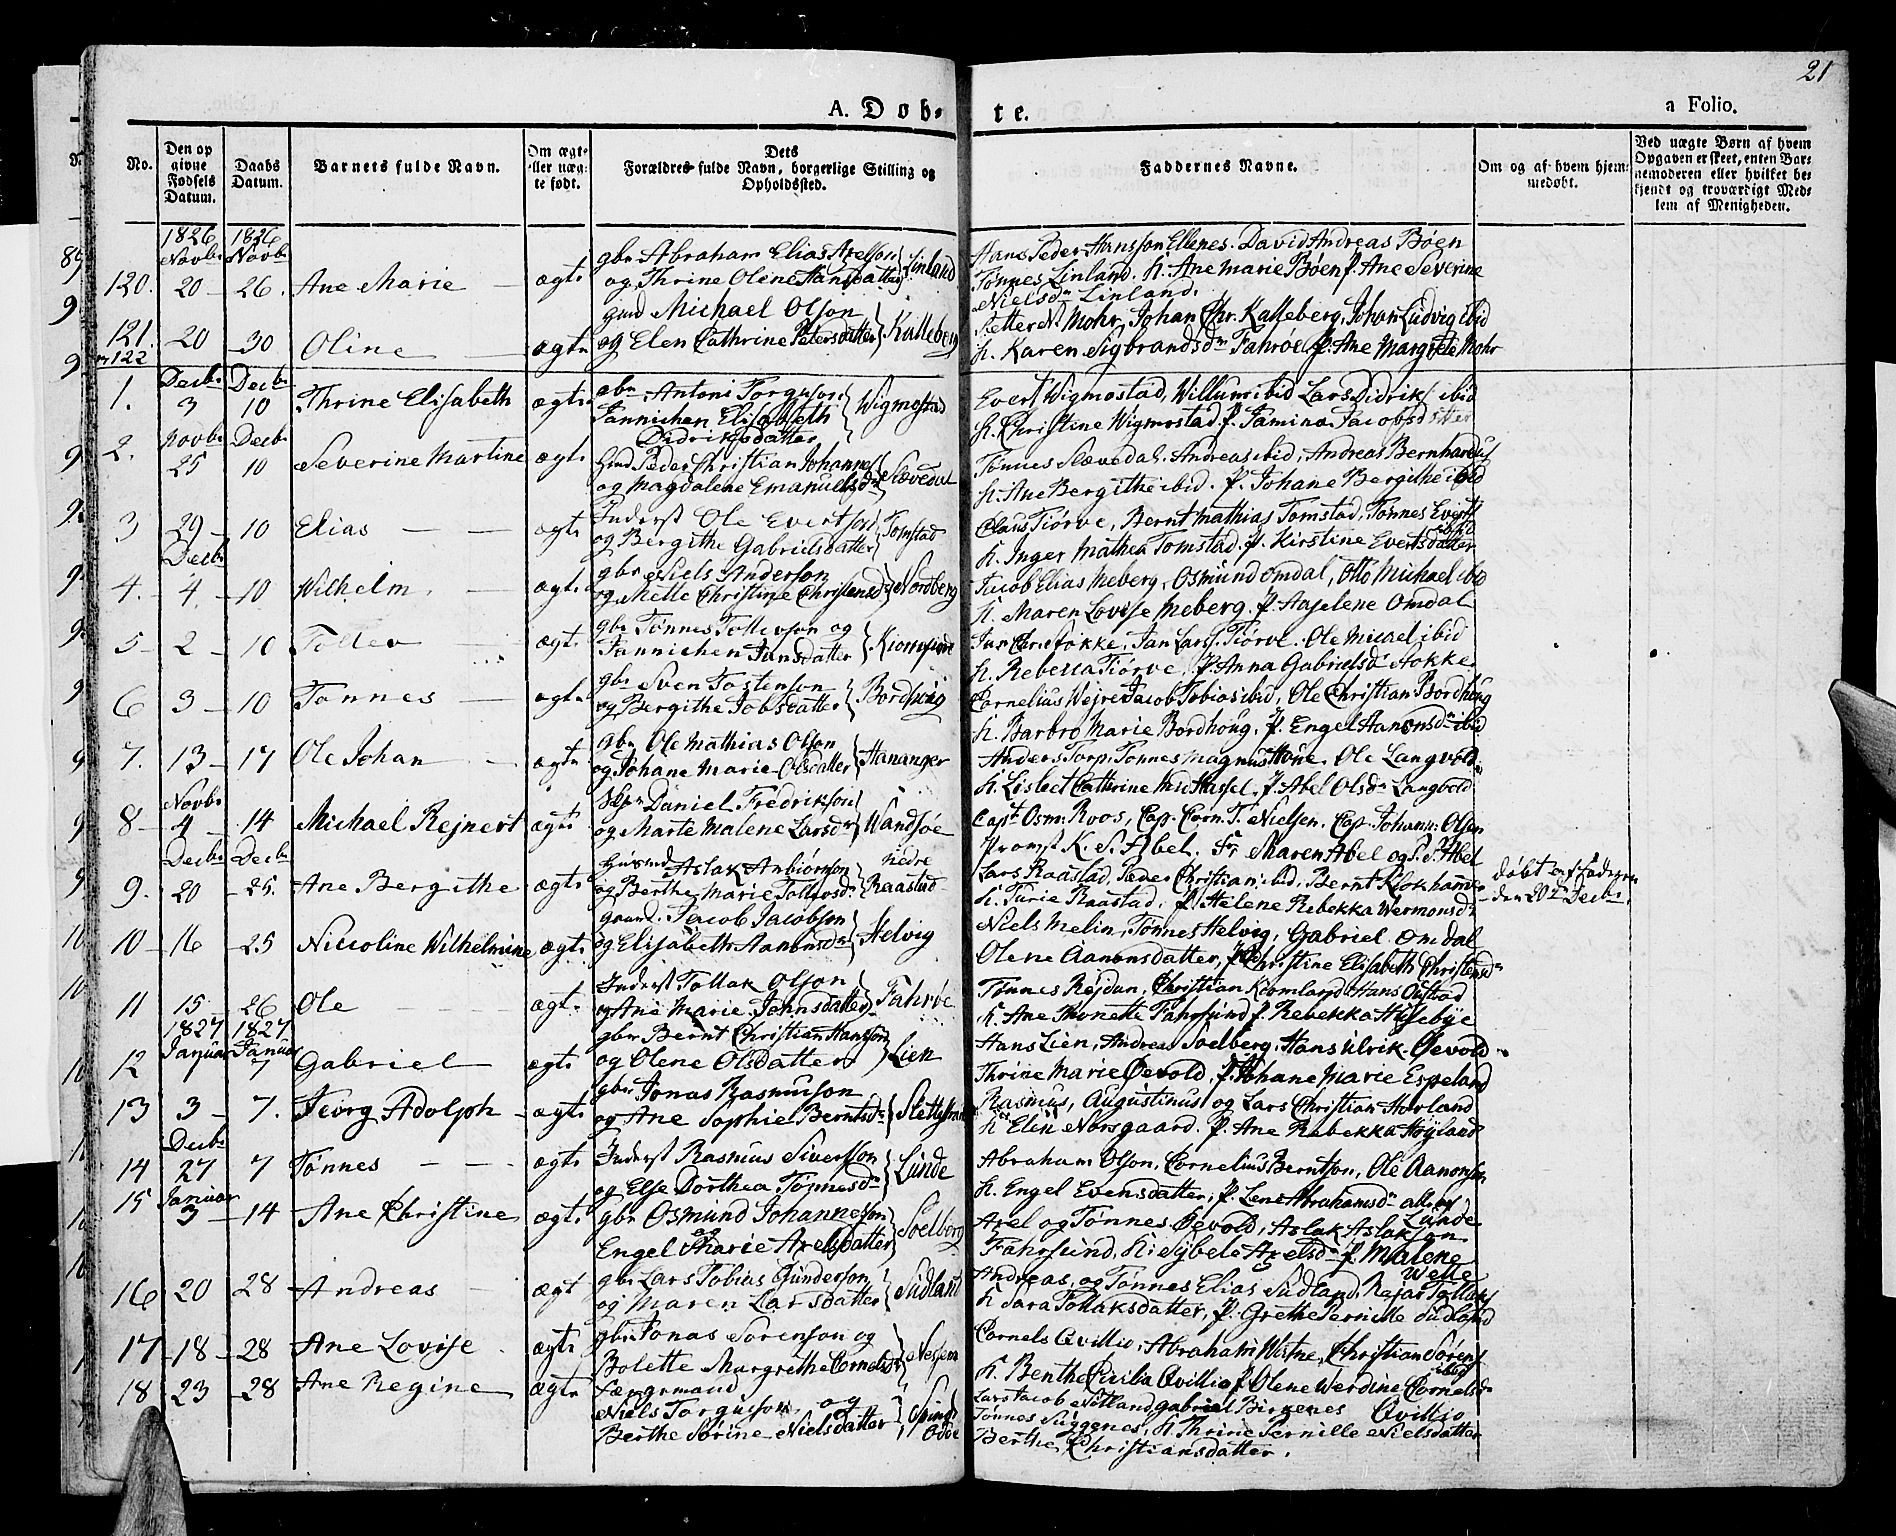 21
A. Døb-te. a Folio.
No.
Den opgivne Fødsels Datum.
Daabs Datum.
Barnets fulde Navn.
Om ægte eller uægte født.
Dets Forældres fulde Navn, borgerlige Stilling og Opholdssted.
Faddernes Navne.
Om og af hvem hjemmedøbt.
Ved uægte Børn af hvem Opgaven er skeet, enten Barnemoderen eller hvilket bekjendt og troværdigt Medlem af Menigheden.
1826 1826
Novbr Novbr gbr Abraham Elias Axelson Hans Peder Hansson Ellenes. David Andreas Bøen
120. 20 - 26. Ane Marie ægte og Thrine Olene Hansdatter Linland Tønnes Linland. K. Ane Marie Bøen P. Ane Severine
Nielsdr Linland.
Michael Olson Mohr, Johan Chr. Kalleberg, Johan Ludvig ibid
121. 20 - 30 Oline ægte og Elen Cathrine Petersdatter Kalleberg K. Karen Sigbrandsdr Fahrøe P. Ane Margrete Mohr
122
Decbr Decbr gbr Antoni Torguson Evert Wigmostad, Willum ibid Lars Didrik ibid
1. 3 10 Thrine Elisabeth ægte Jannichen Elisabeth Wigmostad K. Christine Wigmostad P. Tamina Jacobsdatter
Didriksdatter
Novbr Decbr Peder Christian Johannes Tønnes Slævedal. Andreas ibid, Andreas Bernhardus
2. 25 10 Severine Martine ægte og Magdalene Emanuelsdr Slævedal K. Ane Bergithe ibid. P. Johane Bergithe ibid
Inderst Ole Evertson Claus Tiørve, Bernt Mathias Tomstad, Tønnes Evert
3 29 - 10 Elias ægte og Bergithe Gabrielsdatter Tomstad K. Inger Mathea Tomstad. P. Kirstine Evertsdatter ibid
Decbr gbr Niels Anderson Jacob Elias Meberg, Osmund Omdal, Otto Michael ibid
4. 4. - 10 Wilhelm ægte og Mette Christine Christensdr Nordberg K. Maren Lovise Meberg. P. Aaselene Omdal
gbr Tønnes Tollevson og Stokke, Jan Lars. Tiørve. Ole Micael ibid
5 - 2 - 10 Tollev ægte Jannichen Jansdatter K. Rebecca Tiørve. P. Anna Gabrielsdr Stokke
gbr Sven Tostenson Cornelius Vejre Jacob Tobias ibid, Ole Christian Bordhoug
6 3 - 10 Tønnes ægte og Bergithe Jobsdatter Bordhoug K. Barbro Marie Bordhoug. P. Engel Aanonsdr ibid
gbr Ole Mathias Olson Anders Torp. Tønnes Magnus Høne. Ole Langvold
7. 13 - 17 Ole Johan ægte og Johane Marie Olsdatter Hananger K. Lisbet Catherine Hassel, P. Abel Olsdr Langvold
Novbr Skpr Daniel Fredrikson Capt Osm: Roos, Cap. Corn. T. Nielsen. Cap. Johann: Olsen
8 - 4 - 14 Michael Rejnert ægte og Marte Malene Larsdr Vandsøe Promst K. S. Abel. Fr. Maren Abel og P. S. Abel
Decbr Decbr Huusmd Aslak Anbiørnson nedre Lars Raastad, Peder Christian ibid, Bernt Klokhamr døbt af Faderen
9. 20 - 25. Ane Bergithe ægte og Berthe Marie Tollevsdr Raastad K. Turie Raastad, P. Helene Rebekka Wermonsdr den 20de Decbr.
Gaard. Jacob Jacobson Niels Melin, Tønnes Helvig, Gabriel Omdal
10 - 16 - 25 Nicoline Wilhelmine ægte og Elisabeth Aanonsdr Helvig Olene Aanonsdatter, P. Christine Elisabeth Christensdr
Inderst Tollak Olson Tønnes Rejdan, Christian Kiømland Hans Oustad
11 15 - 26 Ole ægte og Ane Marie Johnsdatter Fahrøe K. Ane Thonette Fahrsund P. Rebekka Husebye
1827 1827 gbr Bernt Christian Hansson Hans Lien, Andreas Soelberg, Hans Ulrik Øevold
Januar Januar
12 1 7 Gabriel ægte og Olene Olsdatter Lien Thrine Marie Øevold, P. Johane Marie Espeland
gbr Jonas Rasmusson Rasmus, Augustinus og Lars Christian Harland
13 3 - 7. Georg Adolph ægte og Ane Sophie Berntsdr K. Elen Norsgaard. P. Ane Rebekka Høyland
Decbr
14 27 7 Tønnes ægte Inderst Rasmus Siversson Linde Abraham Olson, Cornelius Berntson, Ole Aanonsen
og Else Dorthea Tønnesdr K. Engel Evensdatter, P. Lene Abrahamsdr alle af Lunde
Januar
15 3 - 14 Ane Christine ægte gbr Osmund Johannesson og Soelberg Axel og Tønnes Øevold, Aslak Aslakson
Engel Marie Axelsdatter Fahrsund, K. Sybele Axelsdr P. Malene Welle
16 20 28 Andreas ægt gbr Lars Tobias Gunderson Sudland Andreas, og Tønnes Elias Sudland, Rejar Tollaks
og Maren Larsdatter K. Sara Tollaksdatter, P. Grethe Pernille Sudland
17 - 18 - 28 Ane Lovise ægte gbr Jonas Sørenson og Cornels Qvillio, Abraham Watne, Christian Sørens
Bolette Margrethe Cornelisdr K. Benthe Cecilia Qvillio P. Olene Werdine Cornelsdr ibid
18 23 - 28 Ane Regine ægte Færgemand Lars Jacob Nøtland gabriel Birkenes Qvillio
Niels Torgusson, og Spinds Odde Tønnes Siggenes, K. Thrine Pernille Nielsdatter
Berthe Sørine Nielsdatter Berthe Christiansdatter.